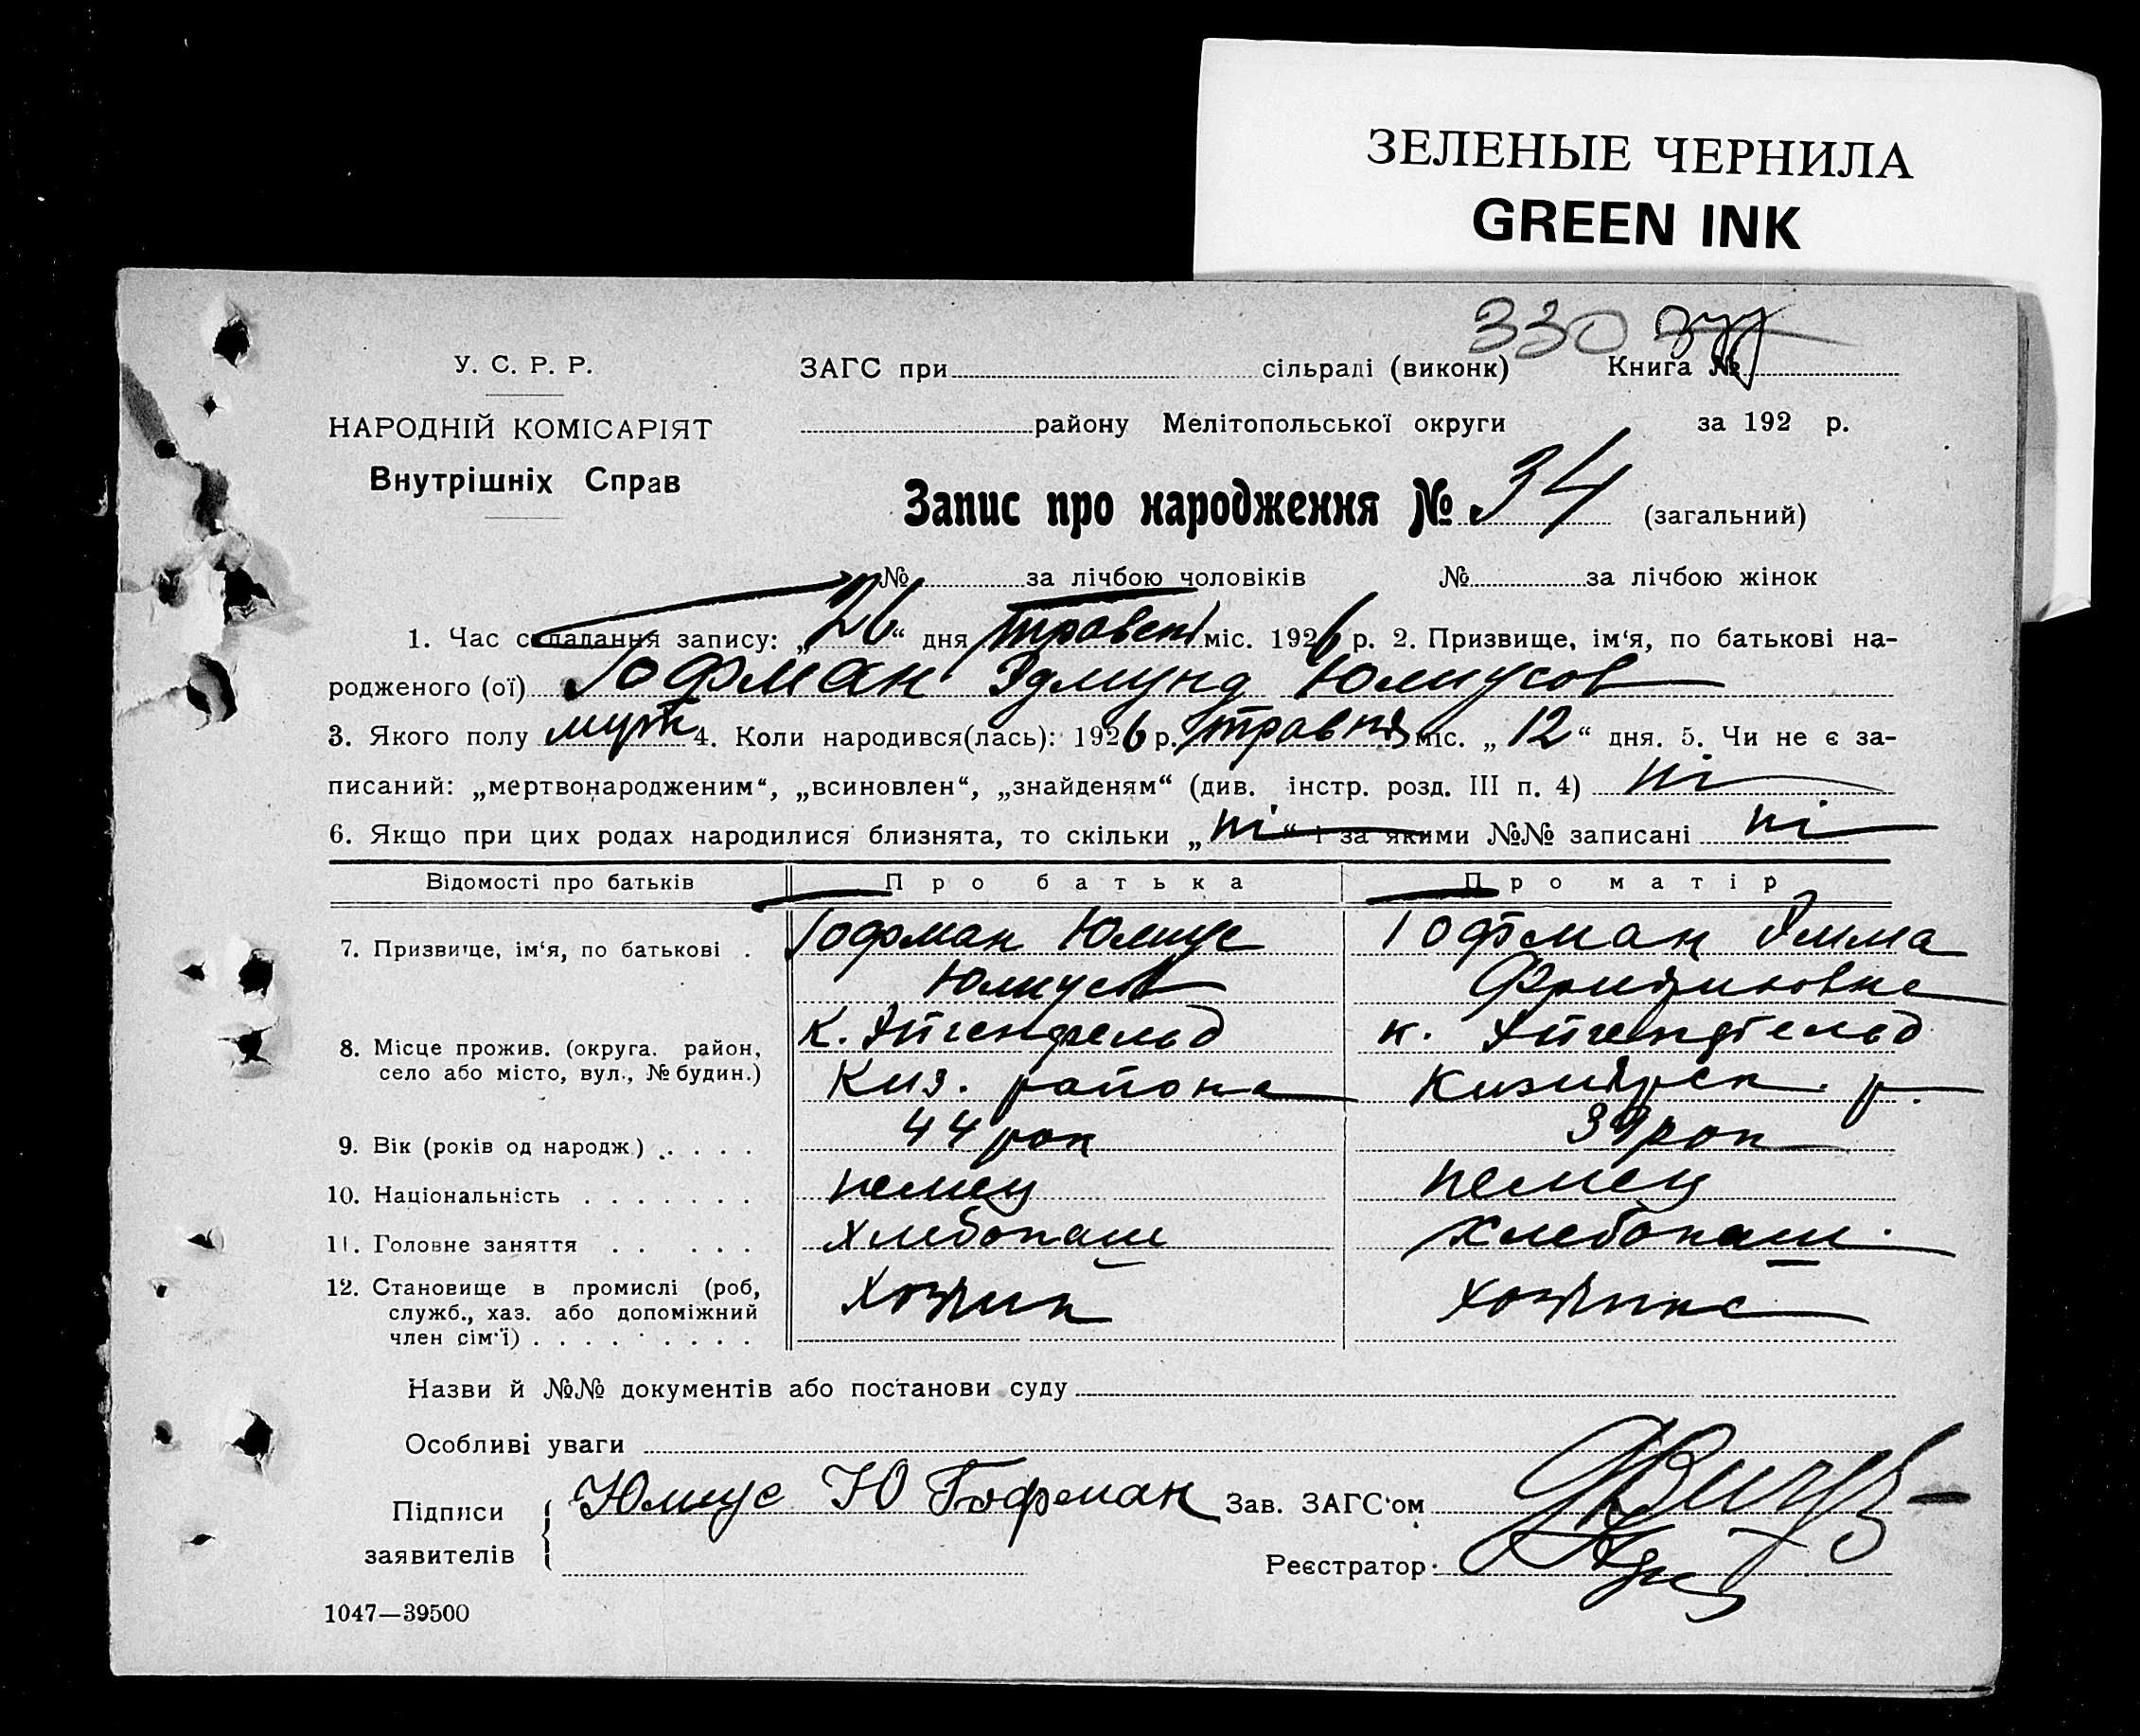 ЗЕЛЕНЫЕ ЧЕРНИЛА
GREEN INK
330
У. С. Р. Р.
ЗАГС при сільраді (виконк) Книга №
НАРОДНІЙ КОМІСАРІЯТ
району Мелітопольської округи за 192 р.
Внутрішніх Справ
Запис про народження № 34 (загальний)
№ за лічбою чоловіків № за лічбою жінок
1. Час складання запису: „26“ дня травень міс. 1926 р. 2. Призвище, ім‘я, по батькові на-
родженого (ої) Гофман Эдмунд Юлиусов
3. Якого полу муж 4. Коли народився(лась): 1926 р. травня міс. „12“ дня. 5. Чи не є за-
писаний: „мертвонародженим“, „всиновлен“, „знайденям“ (див. інстр. розд. III п. 4) ні
6. Якщо при цих родах народилися близнята, то скільки „ні“ і за якими №№ записані ні
Відомості про батьків Про батька Про матір
7. Призвище, ім‘я, по батькові . Гофман Юлиус Гофман Эмма
Юлиусов
8. Місце прожив. (округа. район, к. Эйгенфельд к. Эйгенфельд
село або місто, вул., № будин.) Киз. района Кизиярск. р.
9. Вік (років од народж) . . . . 44 рок 39 рок
10. Національність . . . . . . . немец немец
11. Головне заняття . . . . . хлебопаш хлебопаш.
12. Становище в промислі (роб, хозяин хозяина
служб., хаз. або допоміжний
член сім‘ї) . . . . . . . . .
Назви й №№ документів або постанови суду
Особливі уваги
Підписи Юлиус Ю Гофман Зав. ЗАГС‘ом
заявителів Реєстратор
1047—39500